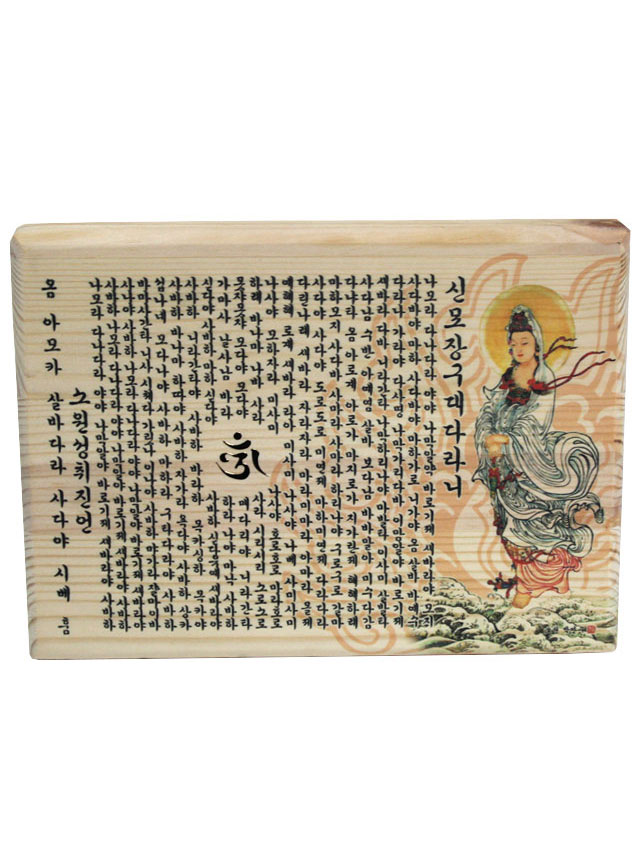 신묘장구대다라니
나모라 다나다라 야야 나막알약 바로기제 새바라야 모지
사다바야 마하 사다바야 마하가로 니가야 옴 살바 바예수
다라나 가라야 다사명 나막가리다바 이맘알야 바로기제
새바라 다바 니라간타 나막하리나야 마발다 이사미 살발타
사다남 수반 아예염 살바 보다남 바바말아 미수다감
다냐타 옴 아로계 아로가 마지로가 지가란제 혜혜하례
마하모지 사다바 사마라 사마라 하리나야 구로구로 갈마
사다야 사다야 도로도로 미연제 마하미연제 다라다라
다린나례 새바라 자라자라 마라미마라 아마라 몰제
예혜혜 로계 새바라 라아 미사미 나사야 나베 사미사미
나사야 모하자라 미사미 나사야 호로호로 마라호로
하례 바나마 나바 사라 사라 시리시리 소로소로
못쟈못쟈 모다야 모다야 매다리야 니라간타
가마사 날사남 바라 하라 나야 마낙 사바하
싯다야 사바하 마하싯다야 사바하 싯다유예
사바하 니라간타야 사바하 바라하 목카싱하 목카야
사바하 바나마 하따야 사바하 자가라 욕다야 사바하 상카
섭나네 모다나야 사바하 마하라 구타다라야 사바하
바마사간타 니사 시체다 가릿나 이나야 사바하 먀가라 잘마이바
사나야 사바하 나모라 다나다라 야야 나막알야 바로기제 새바라야 사바하
소원성취진언
옴 아모카 살바다라 사다야 시베 훔